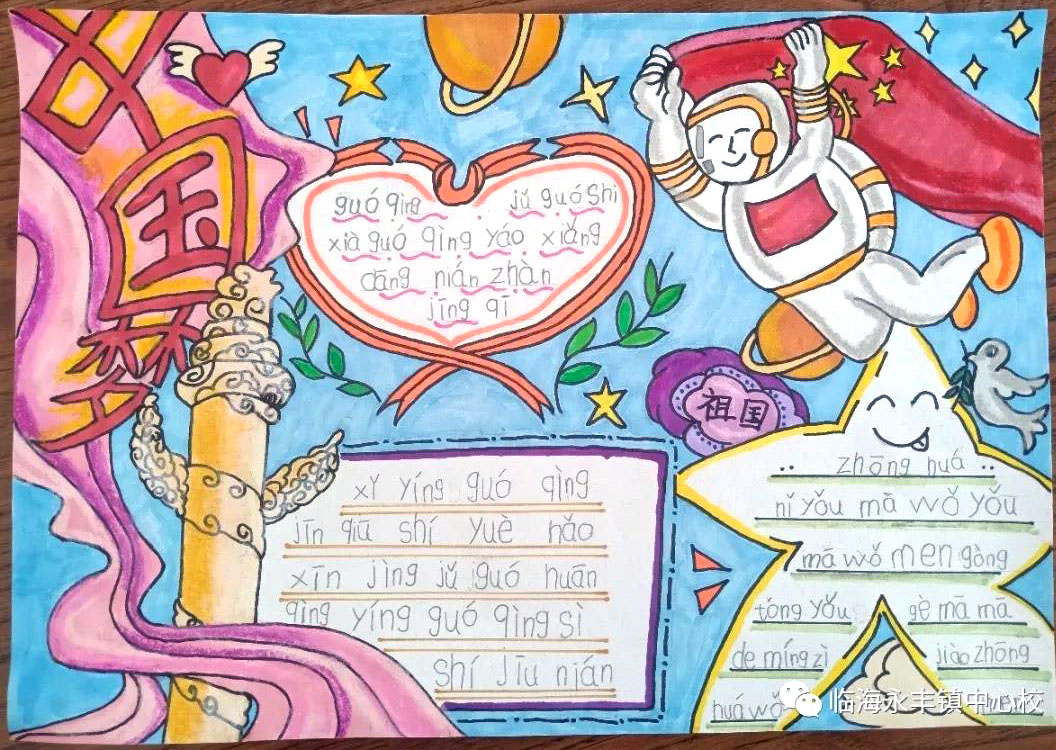 国
guó qìng jǔ guó shi
xià guó qìng yáo xiǎng
dāng nián zhàn
jīng qī
祖国
xǐ yíng guó qìng
jīn qiū shí yuè hǎo
xīn jìng jǔ guó huān
qìng yíng guó qìng sì
shí jīu nián
zhōng huá
nǐ yǒu mā wǒ yǒu
mā wǒ men gòng
tóng yǒu gè mā mā
de míng zì jiào zhōng
huá wǒ
临海永丰镇中心校